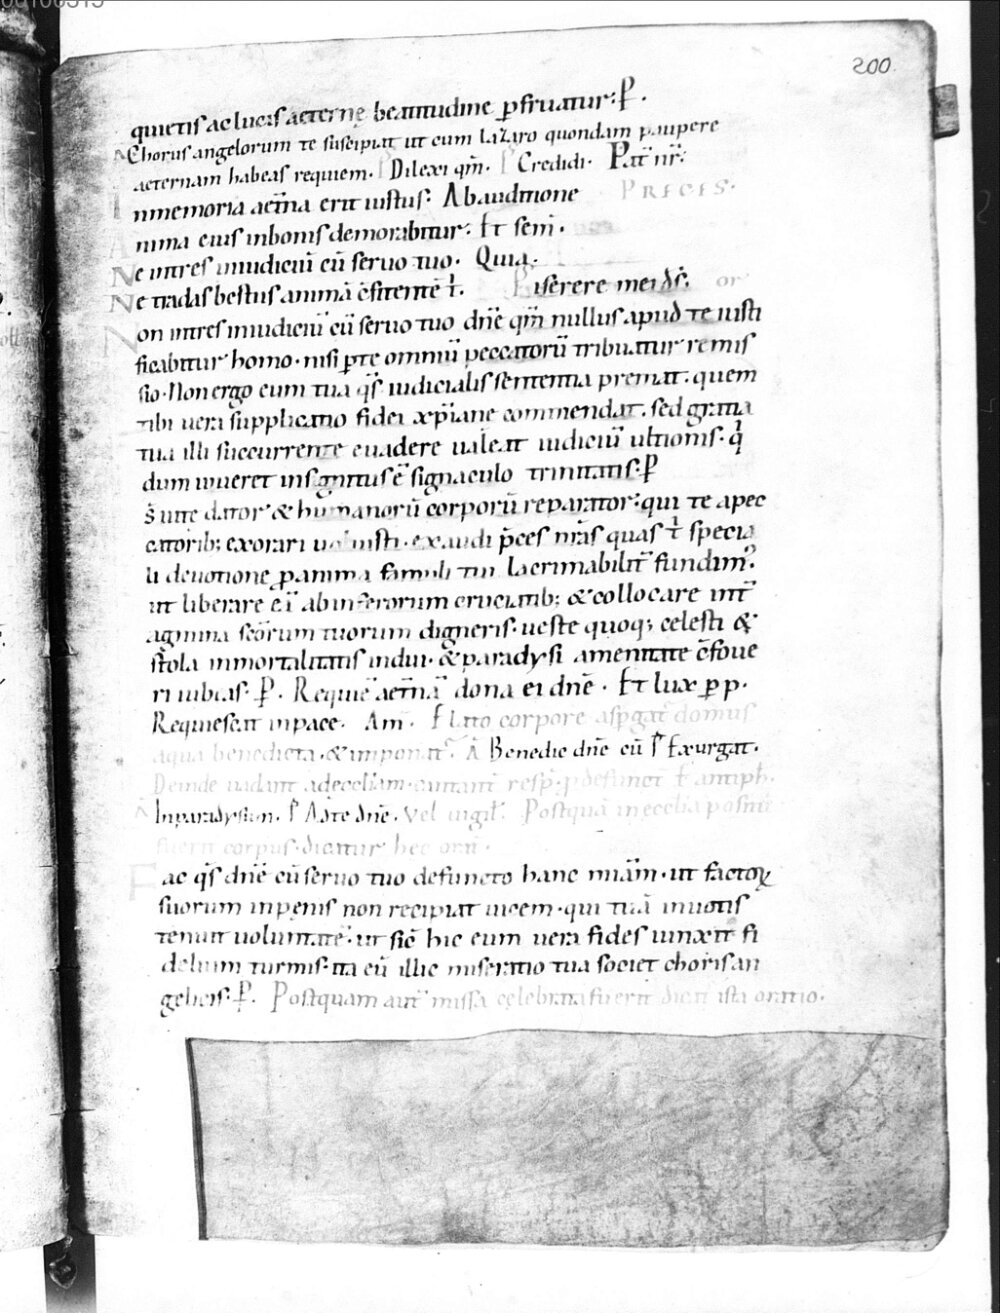 200
quietis ac lucis aeternę beatitudine ꝑfruatur: P̵.
Chorus angelorum te suscipiat ut cum lazaro quondam paupere
aeternam habeas requiem. P Dilexi qm̄. P Credidi. Pat̄ nr̄.
In memoria aet̄na erit iustus: Ab auditione PRECES.
Anima eius in bonis demorabitur: Et sem̄.
Ne intres in iudiciū cū seruo tuo. Quia.
Ne tradas bestiis animā c̄fitentē t. Miserere mei d̄s. or
Non intres in iudiciū cū seruo tuo dn̄e qm̄ nullus apud te iusti
ficabitur homo. nisi ꝑ te omniū peccatorū tribuatur remis
sio. Non ergo eum tua q̄s iudicialis sententia premat. quem
tibi uera supplicatio fidei xp̄iane commendat. sed gratia
tua illi succurrente euadere ualeat iudiciū ultionis. q
dum uiueret insignitus ē signaculo trinitatis. P̵
Ds uitę dator & humanorū corporū reparator: qui te a pec
catorib; exorari uoluisti. exaudi p̄ces nr̄as quas t speci a
li deuotione ꝓ anima famuli tui lacrimabilit̄ fundim᷒.
ut liberare eū ab inferorum cruciatib; & collocare int̄
agmina sc̄orum tuorum digneris. ueste quoq; celesti &
stola inmortalitatis indui. & paradysi amenitate c̄foue
ri iubeas. P̵. Requiē aet̄nā dona ei dn̄e. Et lux ꝑp.
Requiescat in pace. Am̄. corpore aspgat̄ domus
aqua benedicta. & imponat̄. A Benedic dn̄e cū P Exurgat.
Deinde uadant ad eccl̄iam. cantant resp̄. antiph̄.
In paradysum. P Ad te dn̄e. Vel uigil̄. Postquā in eccl̄ia positū
fuerit corpus. dicatur hec or̄.
Fac q̄s dn̄e cū seruo tuo defuncto hanc mīam. ut factoꝝ
suorum in penis non recipiat uicem. qui tuā in uotis
tenuit uoluntatē. ut sic̄ hic eum uera fides iunxit fi
delium turmis. ita eū illic miseratio tua societ choris an
gelicis. P̵. Postquam aut̄ missa celebrata fuerit dicat̄ ista oratio.